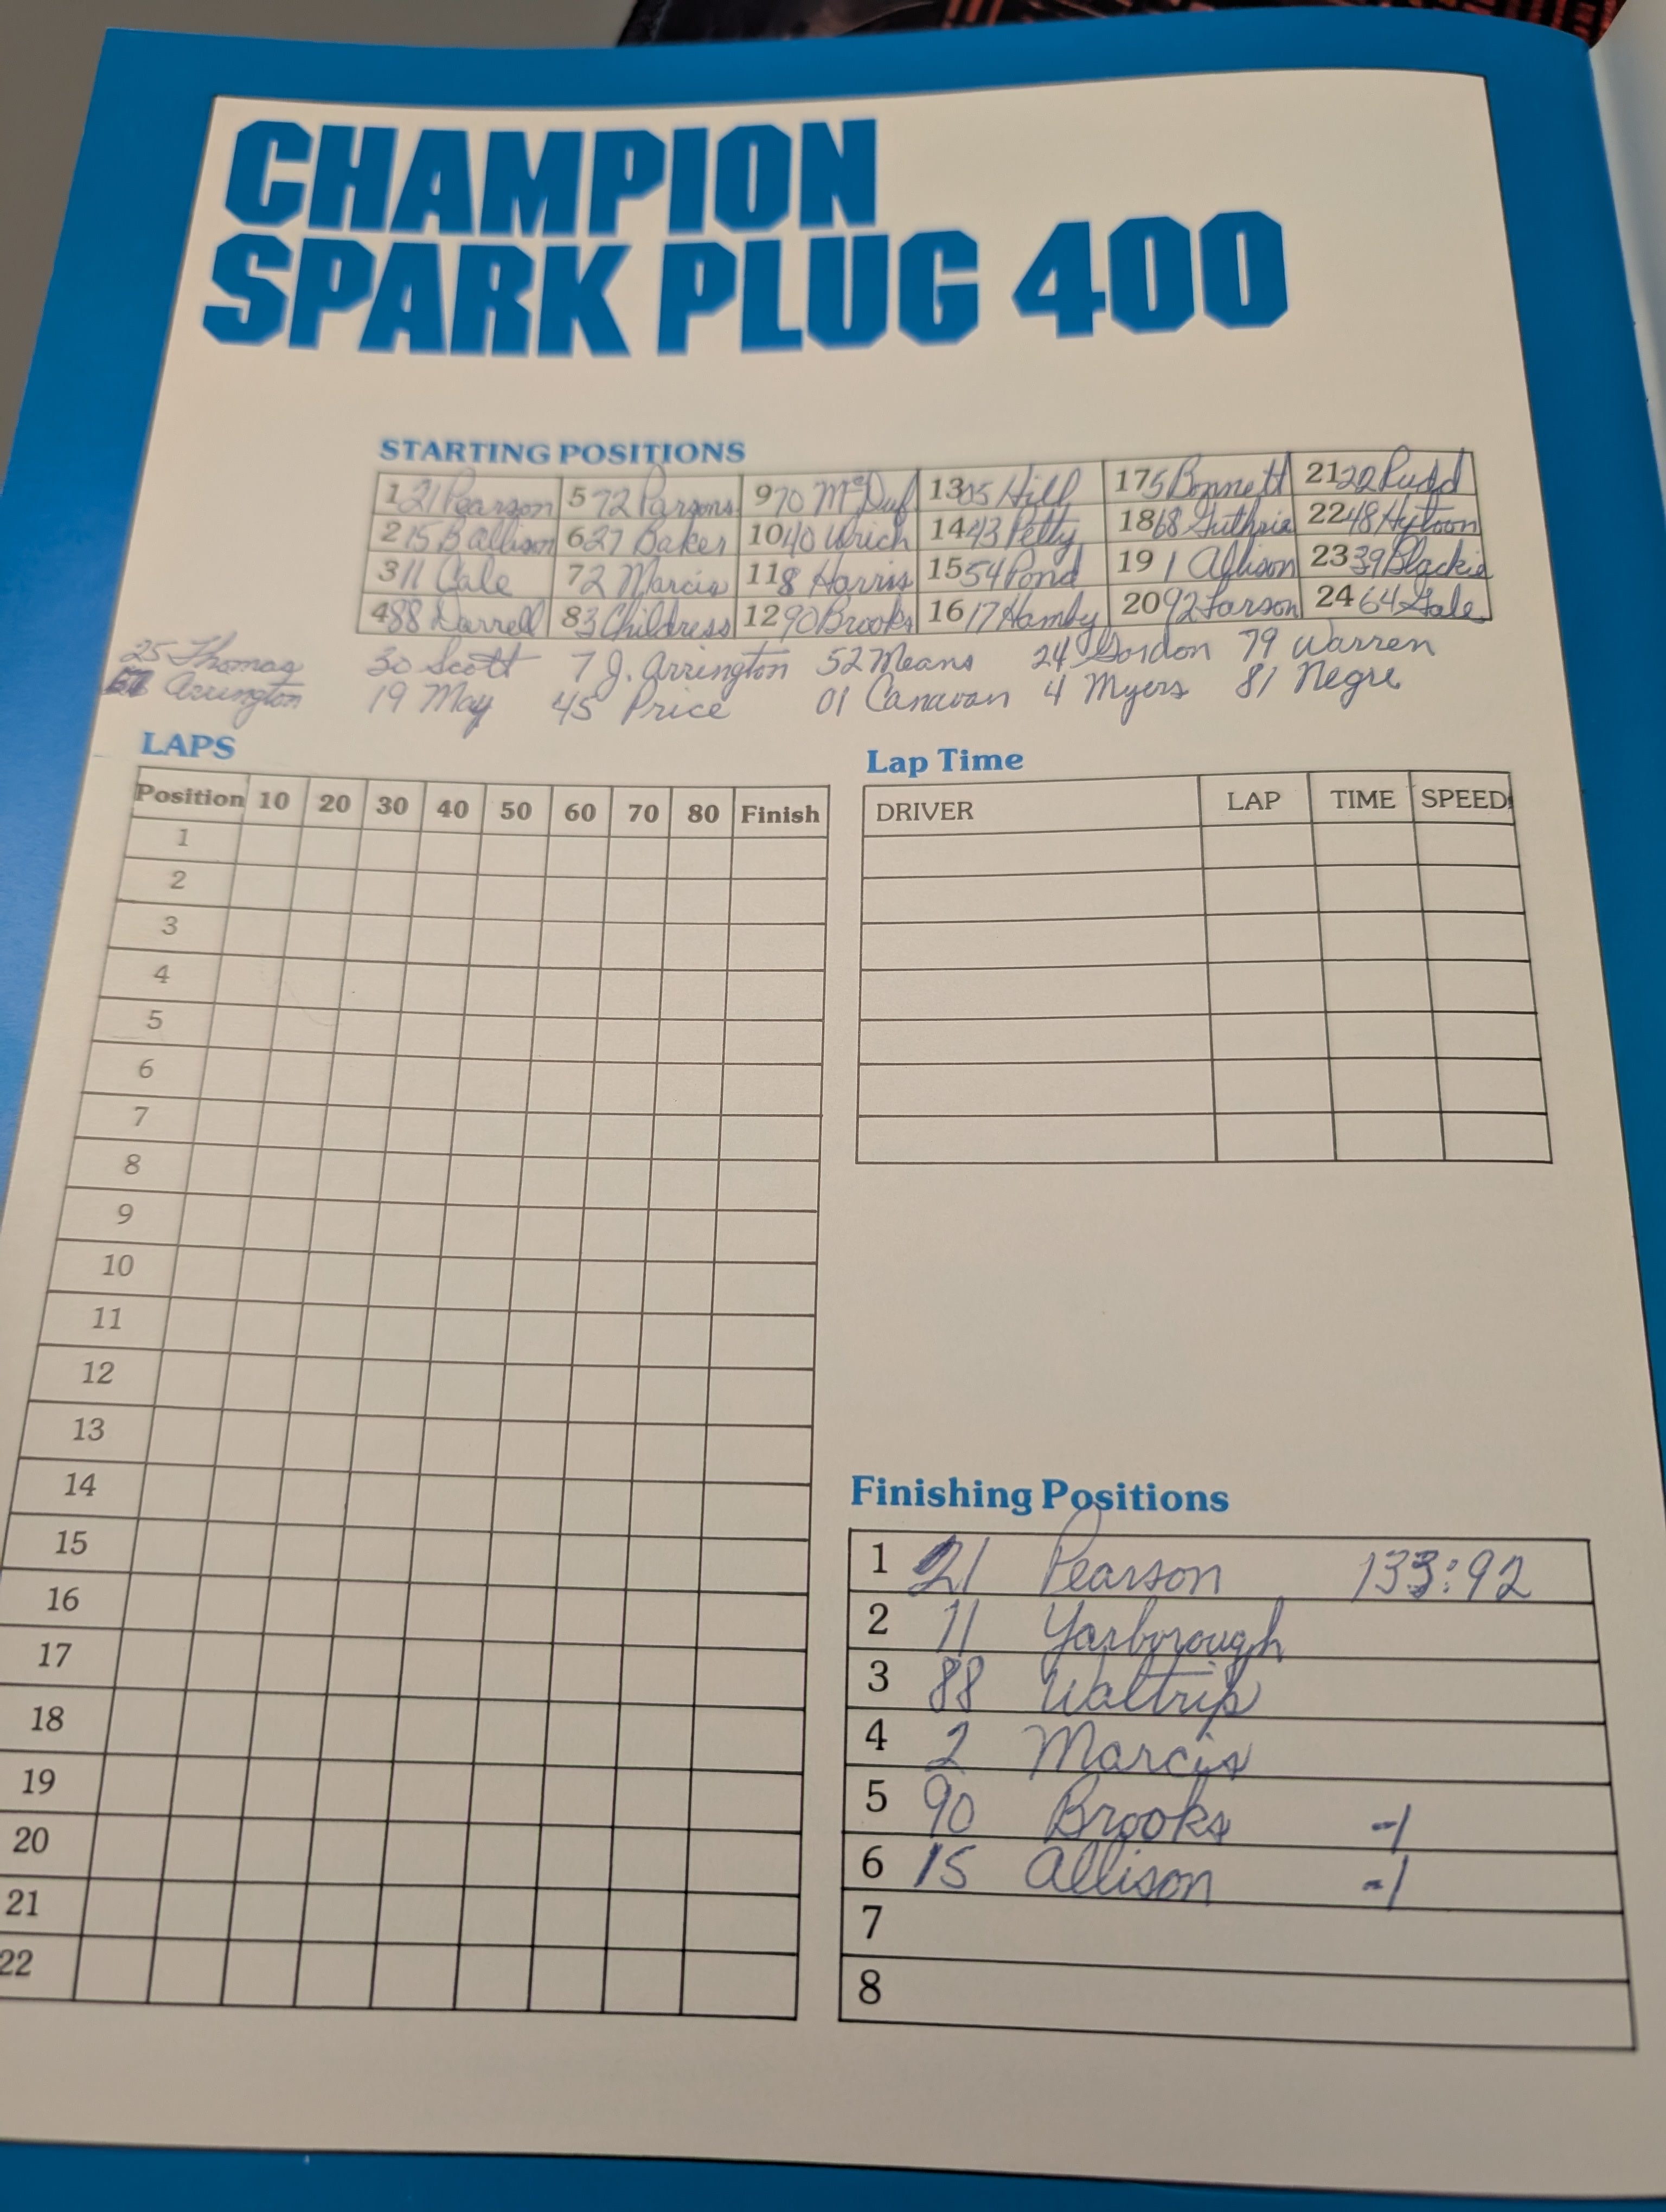 CHAMPION
SPARK PLUG 400
STARTING POSITIONS
1 21 Pearson 5 72 Parsons 9 70 McDuf 13 05 Hill 17 5 Bonnett 21 22 Rudd
2 15 B Allison 6 27 Baker 10 40 Ulrich 14 43 Petty 18 68 Guthrie 22 48 Hytoon
3 11 Cale 7 2 Marcis 11 8 Harris 15 54 Pond 19 1 Allison 23 39 Blackie
4 88 Darrell 8 3 Childress 12 90 Brooks 16 17 Hamby 20 92 Larson 24 64 Gale
25 Thomas 30 Scott 7 J. Arrington 52 Means 24 Gordon 79 Warren
Arrington 19 May 45 Price 01 Canavan 4 Myers 81 Negre
LAPS
Position 10 20 30 40 50 60 70 80 Finish
1
2
3
4
5
6
7
8
9
10
11
12
13
14
15
16
17
18
19
20
21
22
Lap Time
DRIVER LAP TIME SPEED
Finishing Positions
1 21 Pearson 133:92
2 11 Yarborough
3 88 Waltrip
4 2 Marcis
5 90 Brooks -1
6 15 Allison -1
7
8